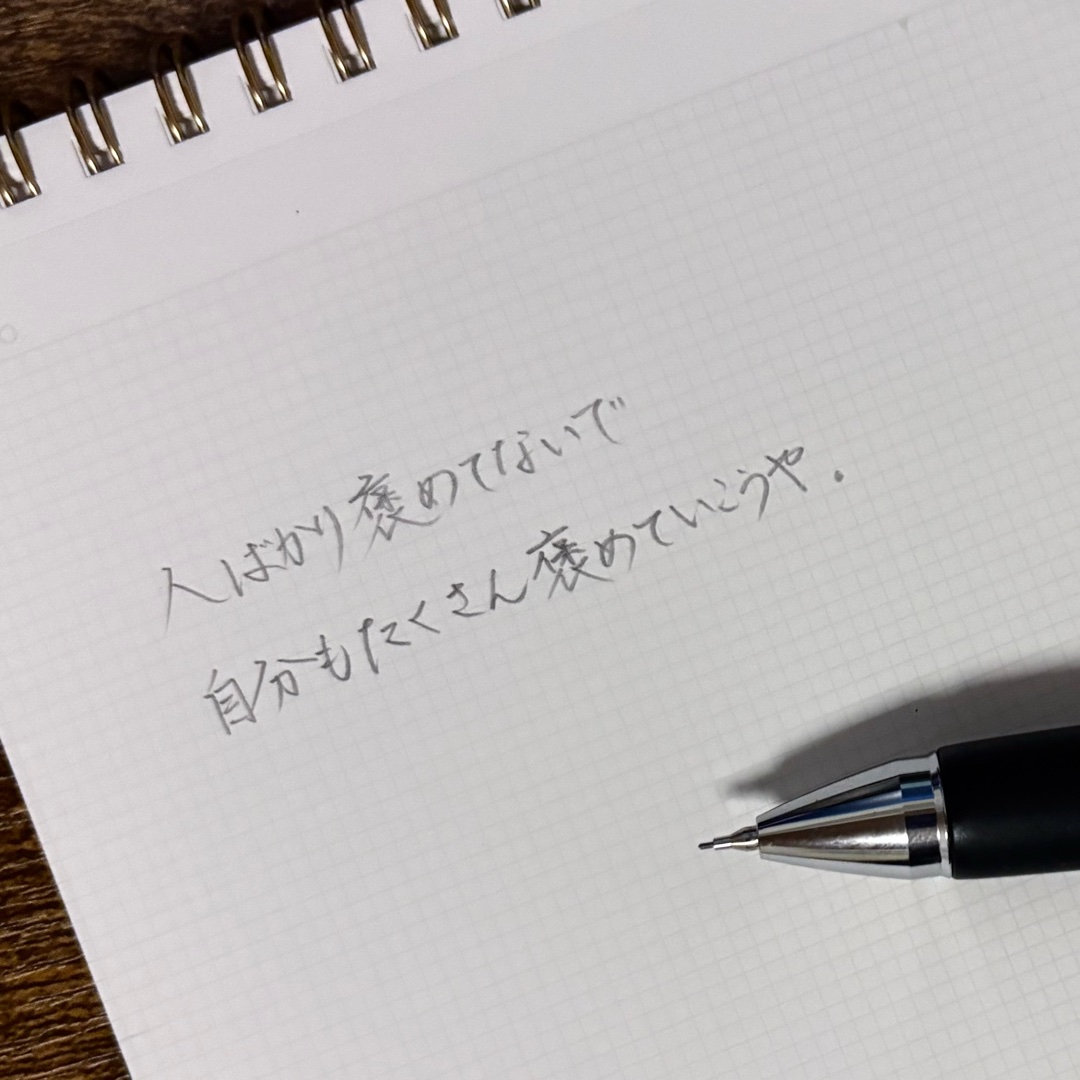 人ばかり褒めてないで
自分もたくさん褒めていこうや.